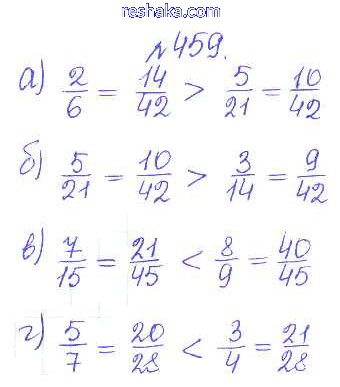 reshaka.com
№459.
а) 2/6 = 14/42 > 5/21 = 10/42
б) 5/21 = 10/42 > 3/14 = 9/42
в) 7/15 = 21/45 < 8/9 = 40/45
г) 5/7 = 20/28 < 3/4 = 21/28